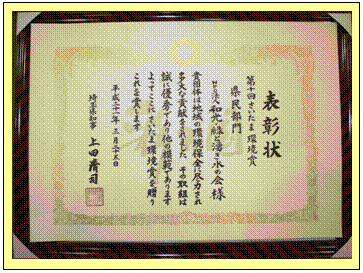 表彰状
第十回さいたま環境賞
県民部門
NPO法人 和光・緑と湧き水の会様
貴団体は地域の環境保全に尽力され
多大な貢献をされました その取組は
誠に優秀であり他の模範であります
よってここにさいたま環境賞を贈り
これを賞します
平成二十一年三月二十五日
埼玉県知事 上田清司